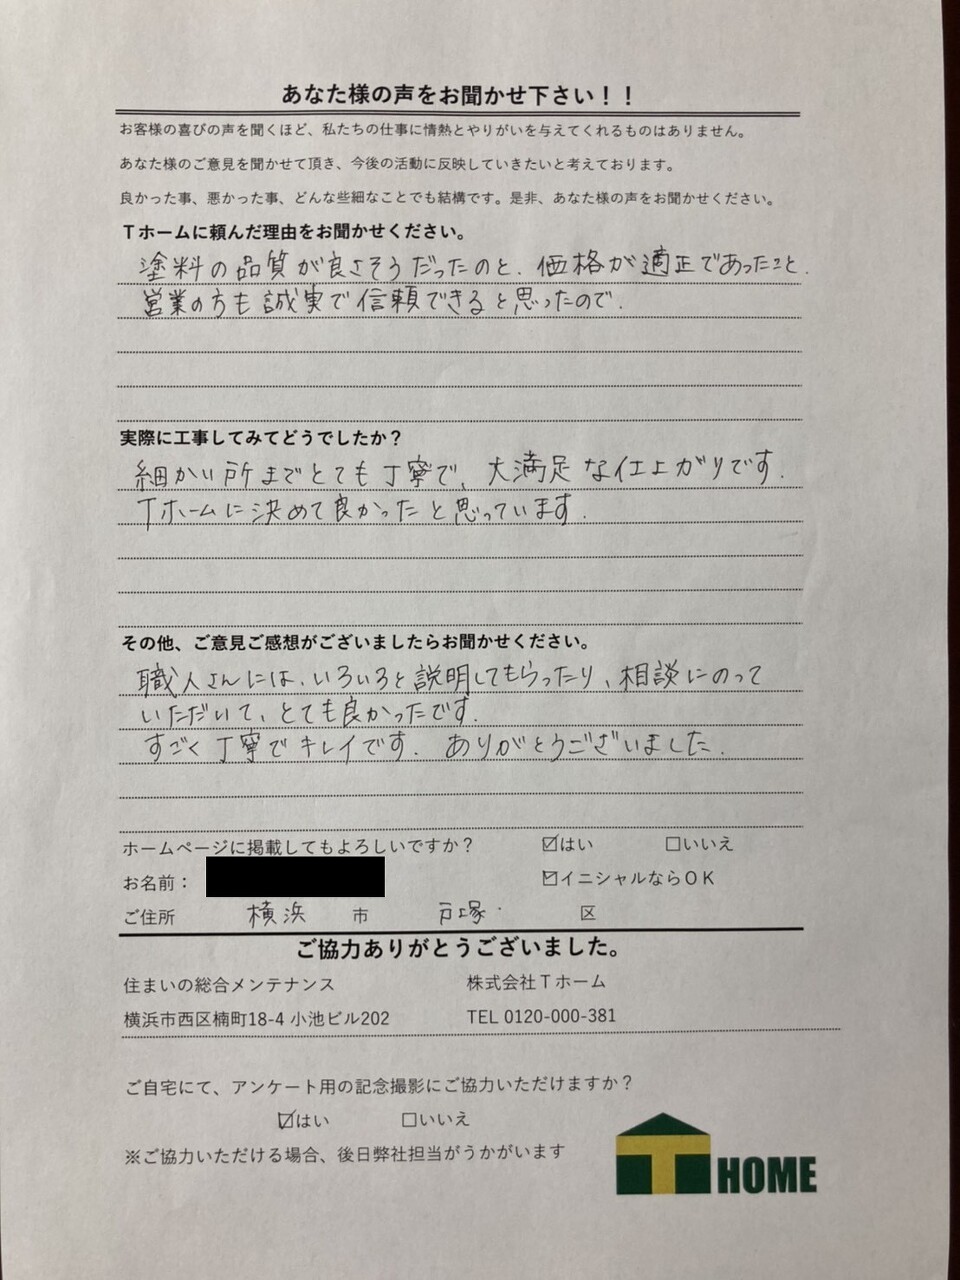 あなた様の声をお聞かせ下さい！！
お客様の喜びの声を聞くほど、私たちの仕事に情熱とやりがいを与えてくれるものはありません。
あなた様のご意見を聞かせて頂き、今後の活動に反映していきたいと考えております。
良かった事、悪かった事、どんな些細なことでも結構です。是非、あなた様の声をお聞かせください。
Ｔホームに頼んだ理由をお聞かせください。
塗料の品質が良さそうだったのと、価格が適正であったこと.
営業の方も誠実で信頼できると思ったので.
実際に工事してみてどうでしたか？
細かい所までとても丁寧で、大満足な仕上がりです.
Tホームに決めて良かったと思っています.
その他、ご意見ご感想がございましたらお聞かせください。
職人さんには、いろいろと説明してもらったり、相談にのって
いただいて、とても良かったです.
すごく丁寧でキレイです. ありがとうございました.
ホームページに掲載してもよろしいですか？ ☑はい □いいえ
お名前： ☑イニシャルならＯＫ
ご住所 横浜 市 戸塚 区
ご協力ありがとうございました。
住まいの総合メンテナンス 株式会社Ｔホーム
横浜市西区楠町18-4 小池ビル202 TEL 0120-000-381
ご自宅にて、アンケート用の記念撮影にご協力いただけますか？
☑はい □いいえ
※ご協力いただける場合、後日弊社担当がうかがいます
T HOME